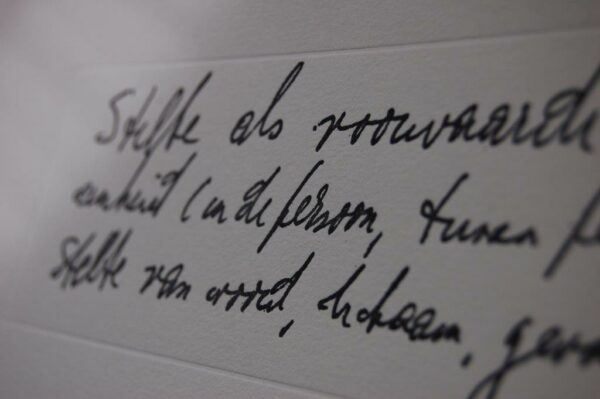 Stilte als voorwaarde
eenheid (in de persoon, tussen
Stilte van woord, lichaam,